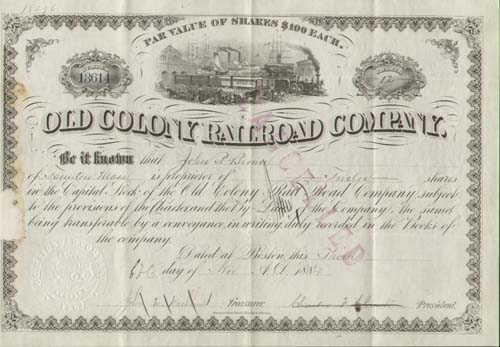 PAR VALUE OF SHARES $100 EACH.
13614
12
OLD COLONY RAILROAD COMPANY.
Be it known that John
of Taunton Mass is proprietor of Twelve shares
in the Capital Stock of the Old Colony Rail Road Company subject
to the provisions of the Charter and the By-Laws of the Company. The same
being transferable by a conveyance in writing duly recorded in the Books of
the company.
Dated at Boston, this
day of Nov A.D. 188
John Treasurer Charles F. Choate President.
CANCELLED